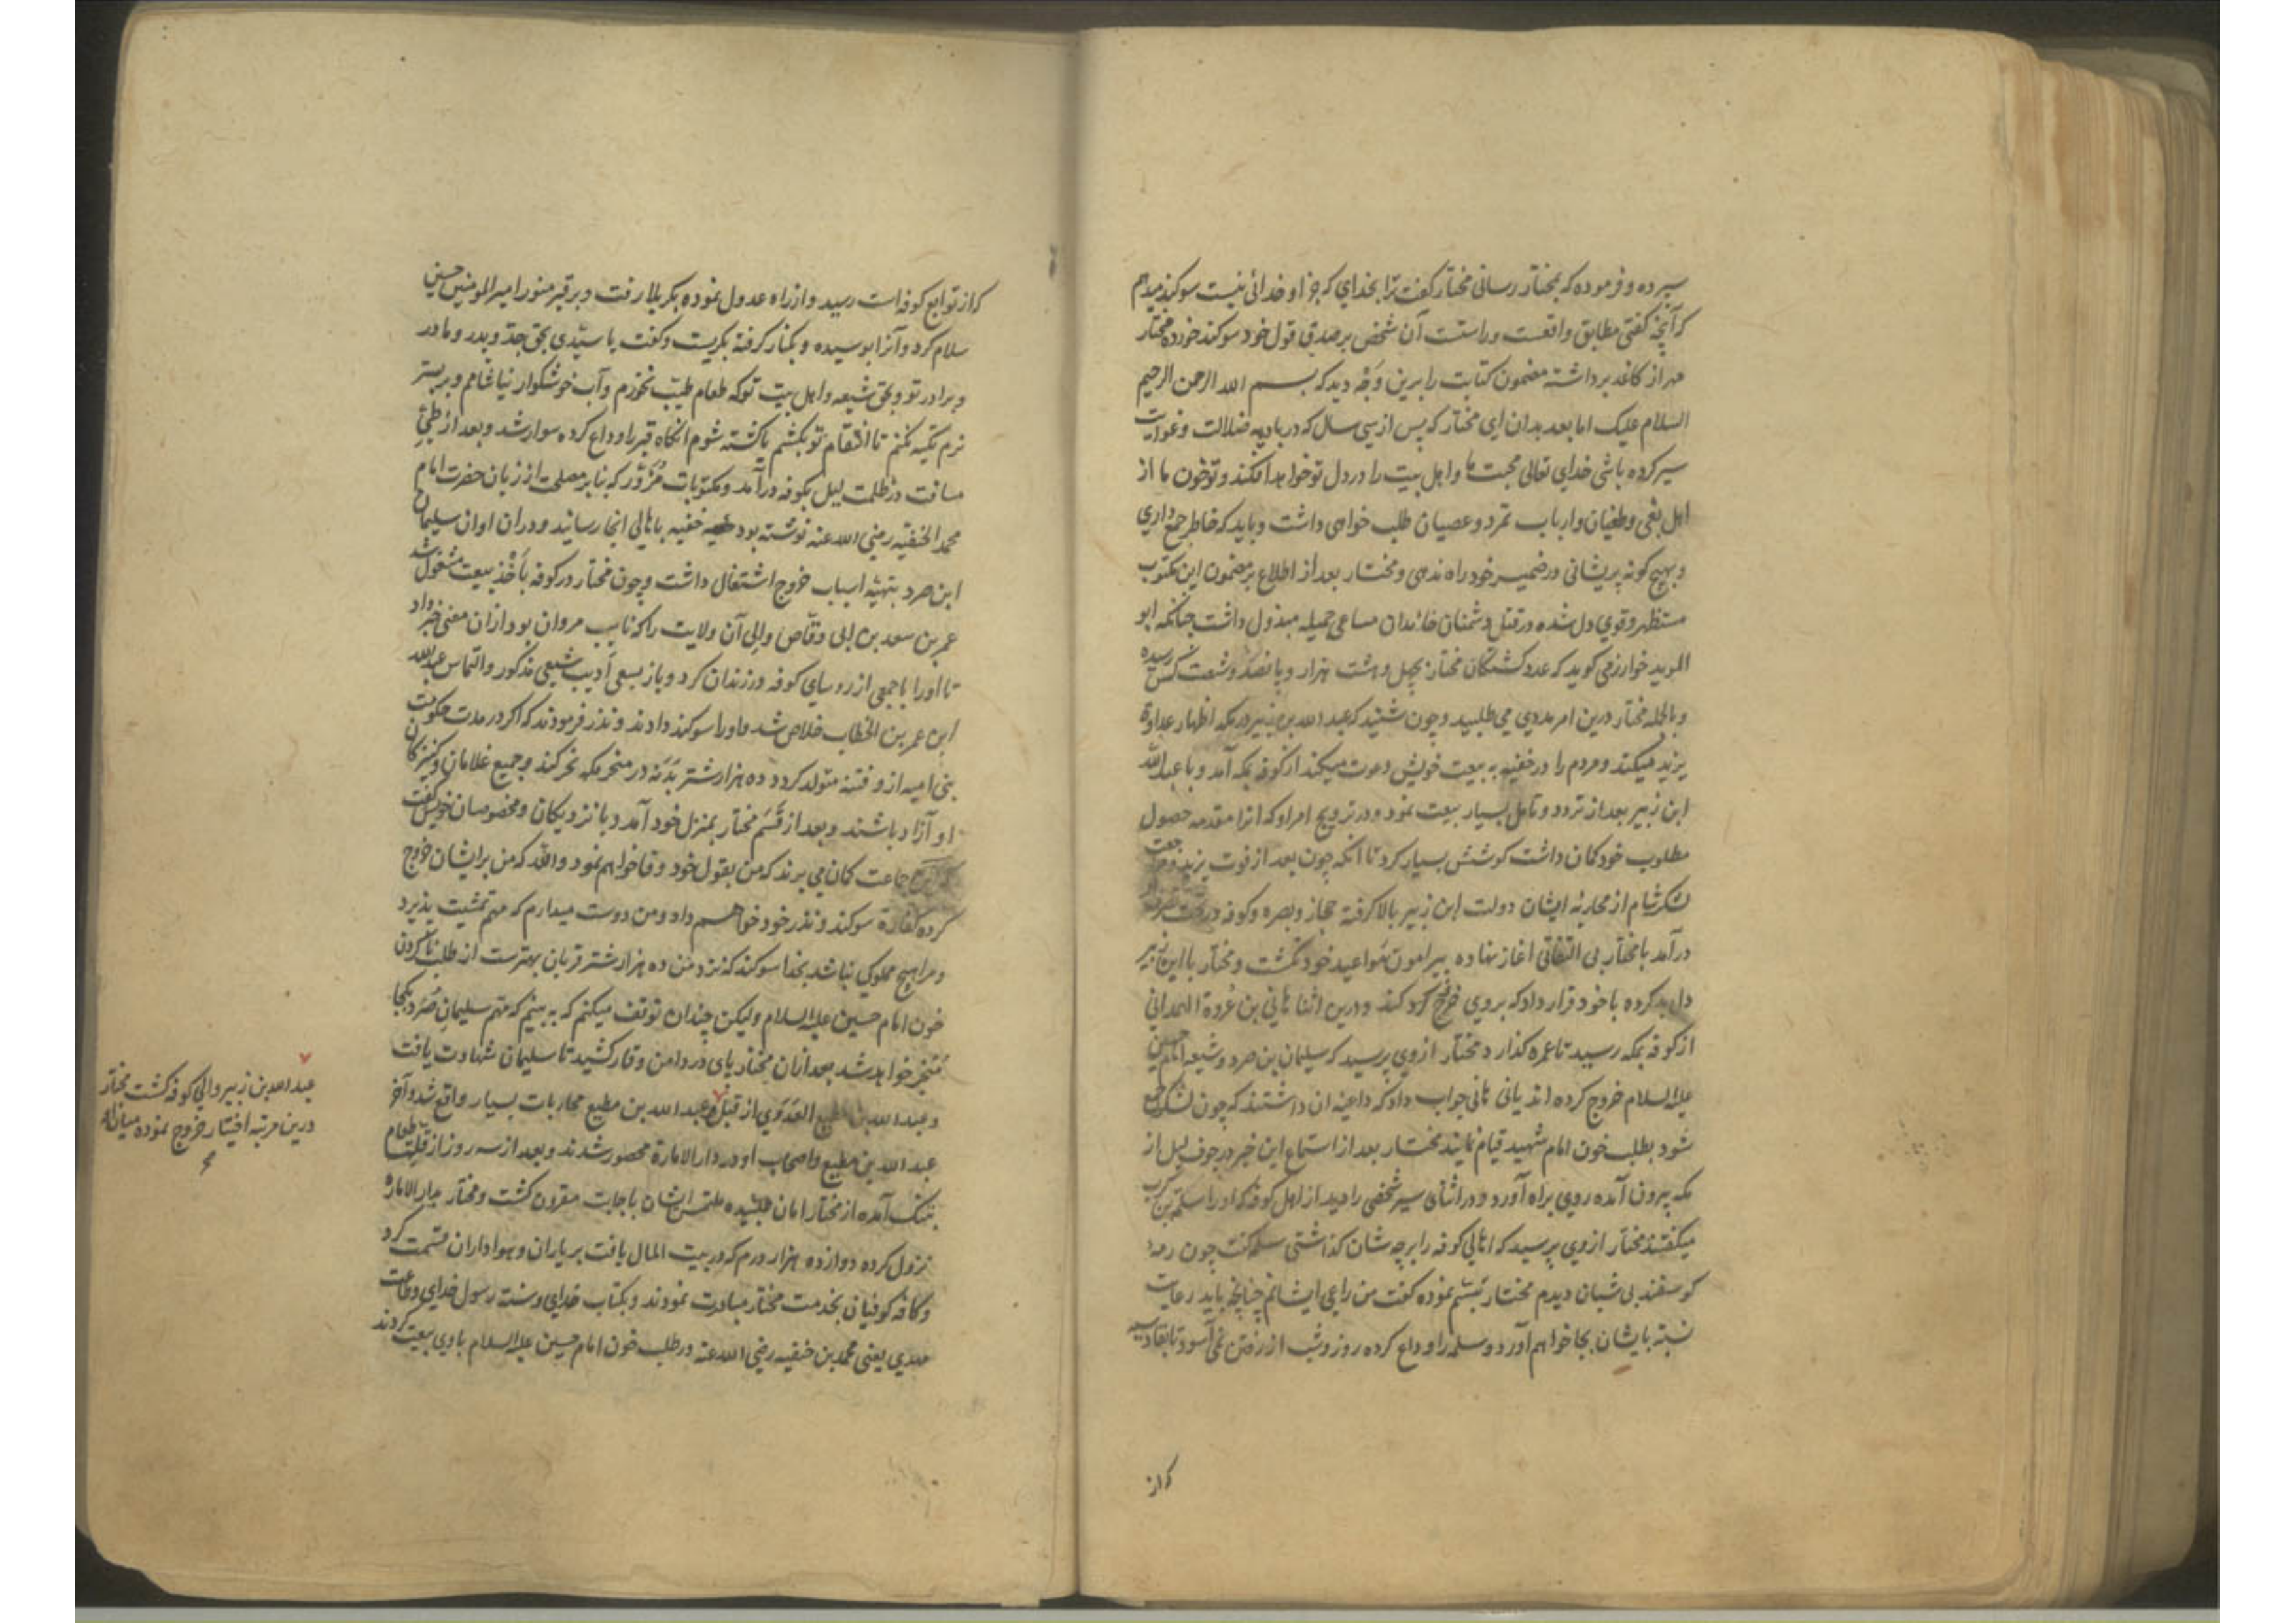 سپرده و فرموده که بمختار رسانی مختار گفت ترا بخدای که جز او خدائی نیست سوکند میدهم
که آنچه گفتی مطابق واقعست و راستست آن شخص بر صدق قول خود سوکند خورده مختار
مهر از کاغذ برداشته مضمون کتابت را برین وجه دید که بسم الله الرحمن الرحیم
السلام علیک اما بعد بدان ای مختار که پس از سی سال که در بادیه ضلالت و غوایت
سیر کرده باشی خدای تعالی محبت ما و اهل بیت را در دل تو خواهد افکند و تو خون ما از
اهل بغی و طغیان و ارباب تمرد و عصیان طلب خواهی داشت و باید که خاطر جمع داری
و بهیچ کونه پریشانی در ضمیر خود راه ندهی و مختار بعد از اطلاع بر مضمون این مکتوب
مستظهر و قوی دل شده در قتل دشمنان خاندان مساعی جمیله مبذول داشت چنانکه ابو
الموید خوارزمی کوید که عدد کشتکان مختار بچهل و هشت هزار و پانصد و شصت کس رسیده
و بالجمله مختار درین امر مددی می طلبید و چون شنید که عبد الله بن زبیر در مکه اظهار عداوة
یزید میکند و مردم را در خفیه به بیعت خویش دعوت میکند از کوفه بمکه آمد و با عبد الله
ابن زبیر بعد از تردد و تامل بسیار بیعت نمود و در ترویج امر او که انرا مقدمه حصول
مطلوب خود کمان داشت کوشش بسیار کرد تا انکه چون بعد از فوت یزید و مراجعت
لشکر شام از محاربه ایشان دولت ابن زبیر بالا کرفته حجاز و بصره و کوفه در تحت
درآمد با مختار بی التفاتی اغاز نهاده پیرامون مواعید خود نکشت و مختار با ابن زبیر
دل بد کرده با خود قرار داد که بر وی خروج کند و درین اثنا هانی بن عروة الهمدانی
از کوفه بمکه رسید تا عمره کذارد مختار از وی پرسید که سلیمان بن صرد و شیعه امام حسین
علیه السلام خروج کرده اند یا نی هانی جواب داد که داعیه ان داشتند که چون لشکر جمع
شود بطلب خون امام شهید قیام نمایند مختار بعد از استماع این خبر در جوف لیل از
مکه بیرون آمده روی براه آورد و در اثنای سیر شخصی را دید از اهل کوفه که او را سلمه بن کرب
میکفتند مختار از وی پرسید که اهالی کوفه را بر چه سان کذاشتی سلمه کفت چون رمه
کوسفند بی شبان دیدم مختار تبسم نموده کفت من راعی ایشانم چنانچه باید رعایت
نسبت بایشان بجا خواهم آورد و سلمه را وداع کرده روز و شب از رفتن نمی آسود تا بقادسیه
که از
که از توابع کوفه است رسید و از راه عدول نموده بکربلا رفت و بر قبر منور امیر المومنین حسین
سلام کرد و آنرا بوسیده و بکنار کرفته بکریست و کفت یا سیدی بحق جد و پدر و مادر
و برادر تو و بحق شیعه و اهل بیت تو که طعام طیب نخورم و آب خوشکوار نیاشامم و بر بستر
نرم تکیه نکنم تا انتقام تو بکشم یا کشته شوم انکاه قبر را وداع کرده سوار شد و بعد از طی
مسافت در ظلمت لیل بکوفه درآمد و مکتوبات مزور که بنا بر مصلحت از زبان حضرت امام
محمد الحنفیه رضی الله عنه نوشته بود خفیه باهالی انجا رسانید و در ان اوان سلیمان
ابن صرد بتهیه اسباب خروج اشتغال داشت و چون مختار در کوفه باخذ بیعت مشغول شد
عمر بن سعد بن ابی وقاص والی آن ولایت را که نایب مروان بود ازان معنی خبر داد
تا او را با جمعی از روسای کوفه در زندان کرد و باز بسعی ادیب شیعی مذکور و التماس عبد الله
ابن عمر بن الخطاب خلاص شد و او را سوکند دادند و نذر فرمودند که اکر در مدت حکومت
بنی امیه از و فتنه متولد کردد ده هزار شتر بدنه در منحر مکه نحر کند و جمیع غلامان و کنیزکان
او آزاد باشند و بعد از قسم مختار بمنزل خود آمد و با نزدیکان و مخصوصان خویش کفت
که این جماعت کمان می برند که من بقول خود وفا خواهم نمود والله که من بر ایشان خروج
کرده کفارة سوکند و نذر خود خواهم داد و من دوست میدارم که مهم تمشیت پذیرد
و مرا هیچ مملوکی نباشد بخدا سوکند که نزد من ده هزار شتر قربان بهترست از طلب ناکردن
خون امام حسین علیه السلام ولیکن چندان توقف میکنم که ببینم که مهم سلیمان صرد بکجا
منجر خواهد شد بعد ازان مختار پای در دامن وقار کشید تا سلیمان شهادت یافت
و عبد الله بن مطیع العدوی از قبل و عبد الله بن مطیع محاربات بسیار واقع شد و آخر
عبد الله بن مطیع و اصحاب او در دار الامارة محصور شدند و بعد از سه روز از قلت طعام
بتنک آمده از مختار امان طلبیده ملتمس ایشان باجابت مقرون کشت و مختار بدار الاماره
نزول کرده دوازده هزار درم که در بیت المال یافت بر یاران و هواداران قسمت کرد
و کافه کوفیان بخدمت مختار مبادرت نمودند و بکتاب خدای و سنته رسول خدای و متابعت
مهدی یعنی محمد بن حنفیه رضی الله عنه و طلب خون امام حسین علیه السلام با وی بیعت کردند
عبد الله بن زبیر والی کوفه کشت مختار
درین مرتبه اختیار خروج نموده میان او